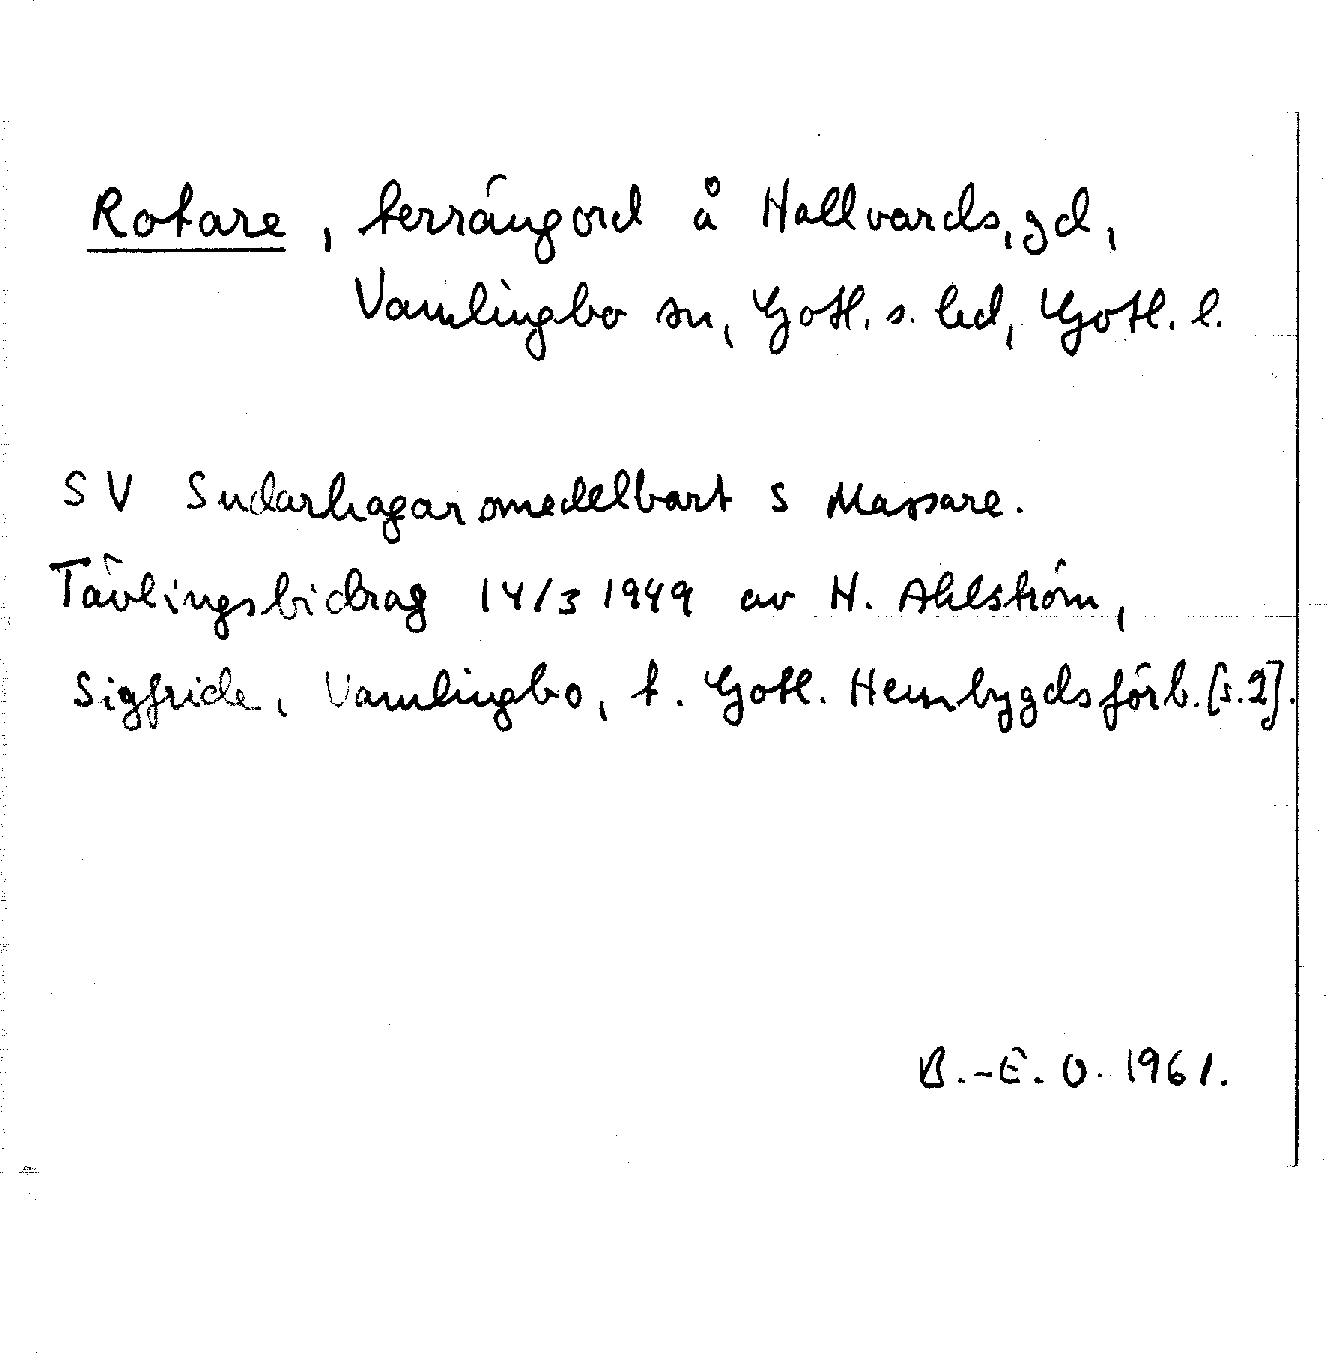 Rotare, terrängord å Hallvards, gd,
Vamlingbo sn, Gotl. s. hd, Gotl. l.
SV Sudarhagar omedelbart S Massare.
Tävlingsbidrag 14/3 1949 av H. Ahlström,
Sigfride, Vamlingbo, t. Gotl. Hembygdsförb. [s.2].
B.-E. O. 1961.